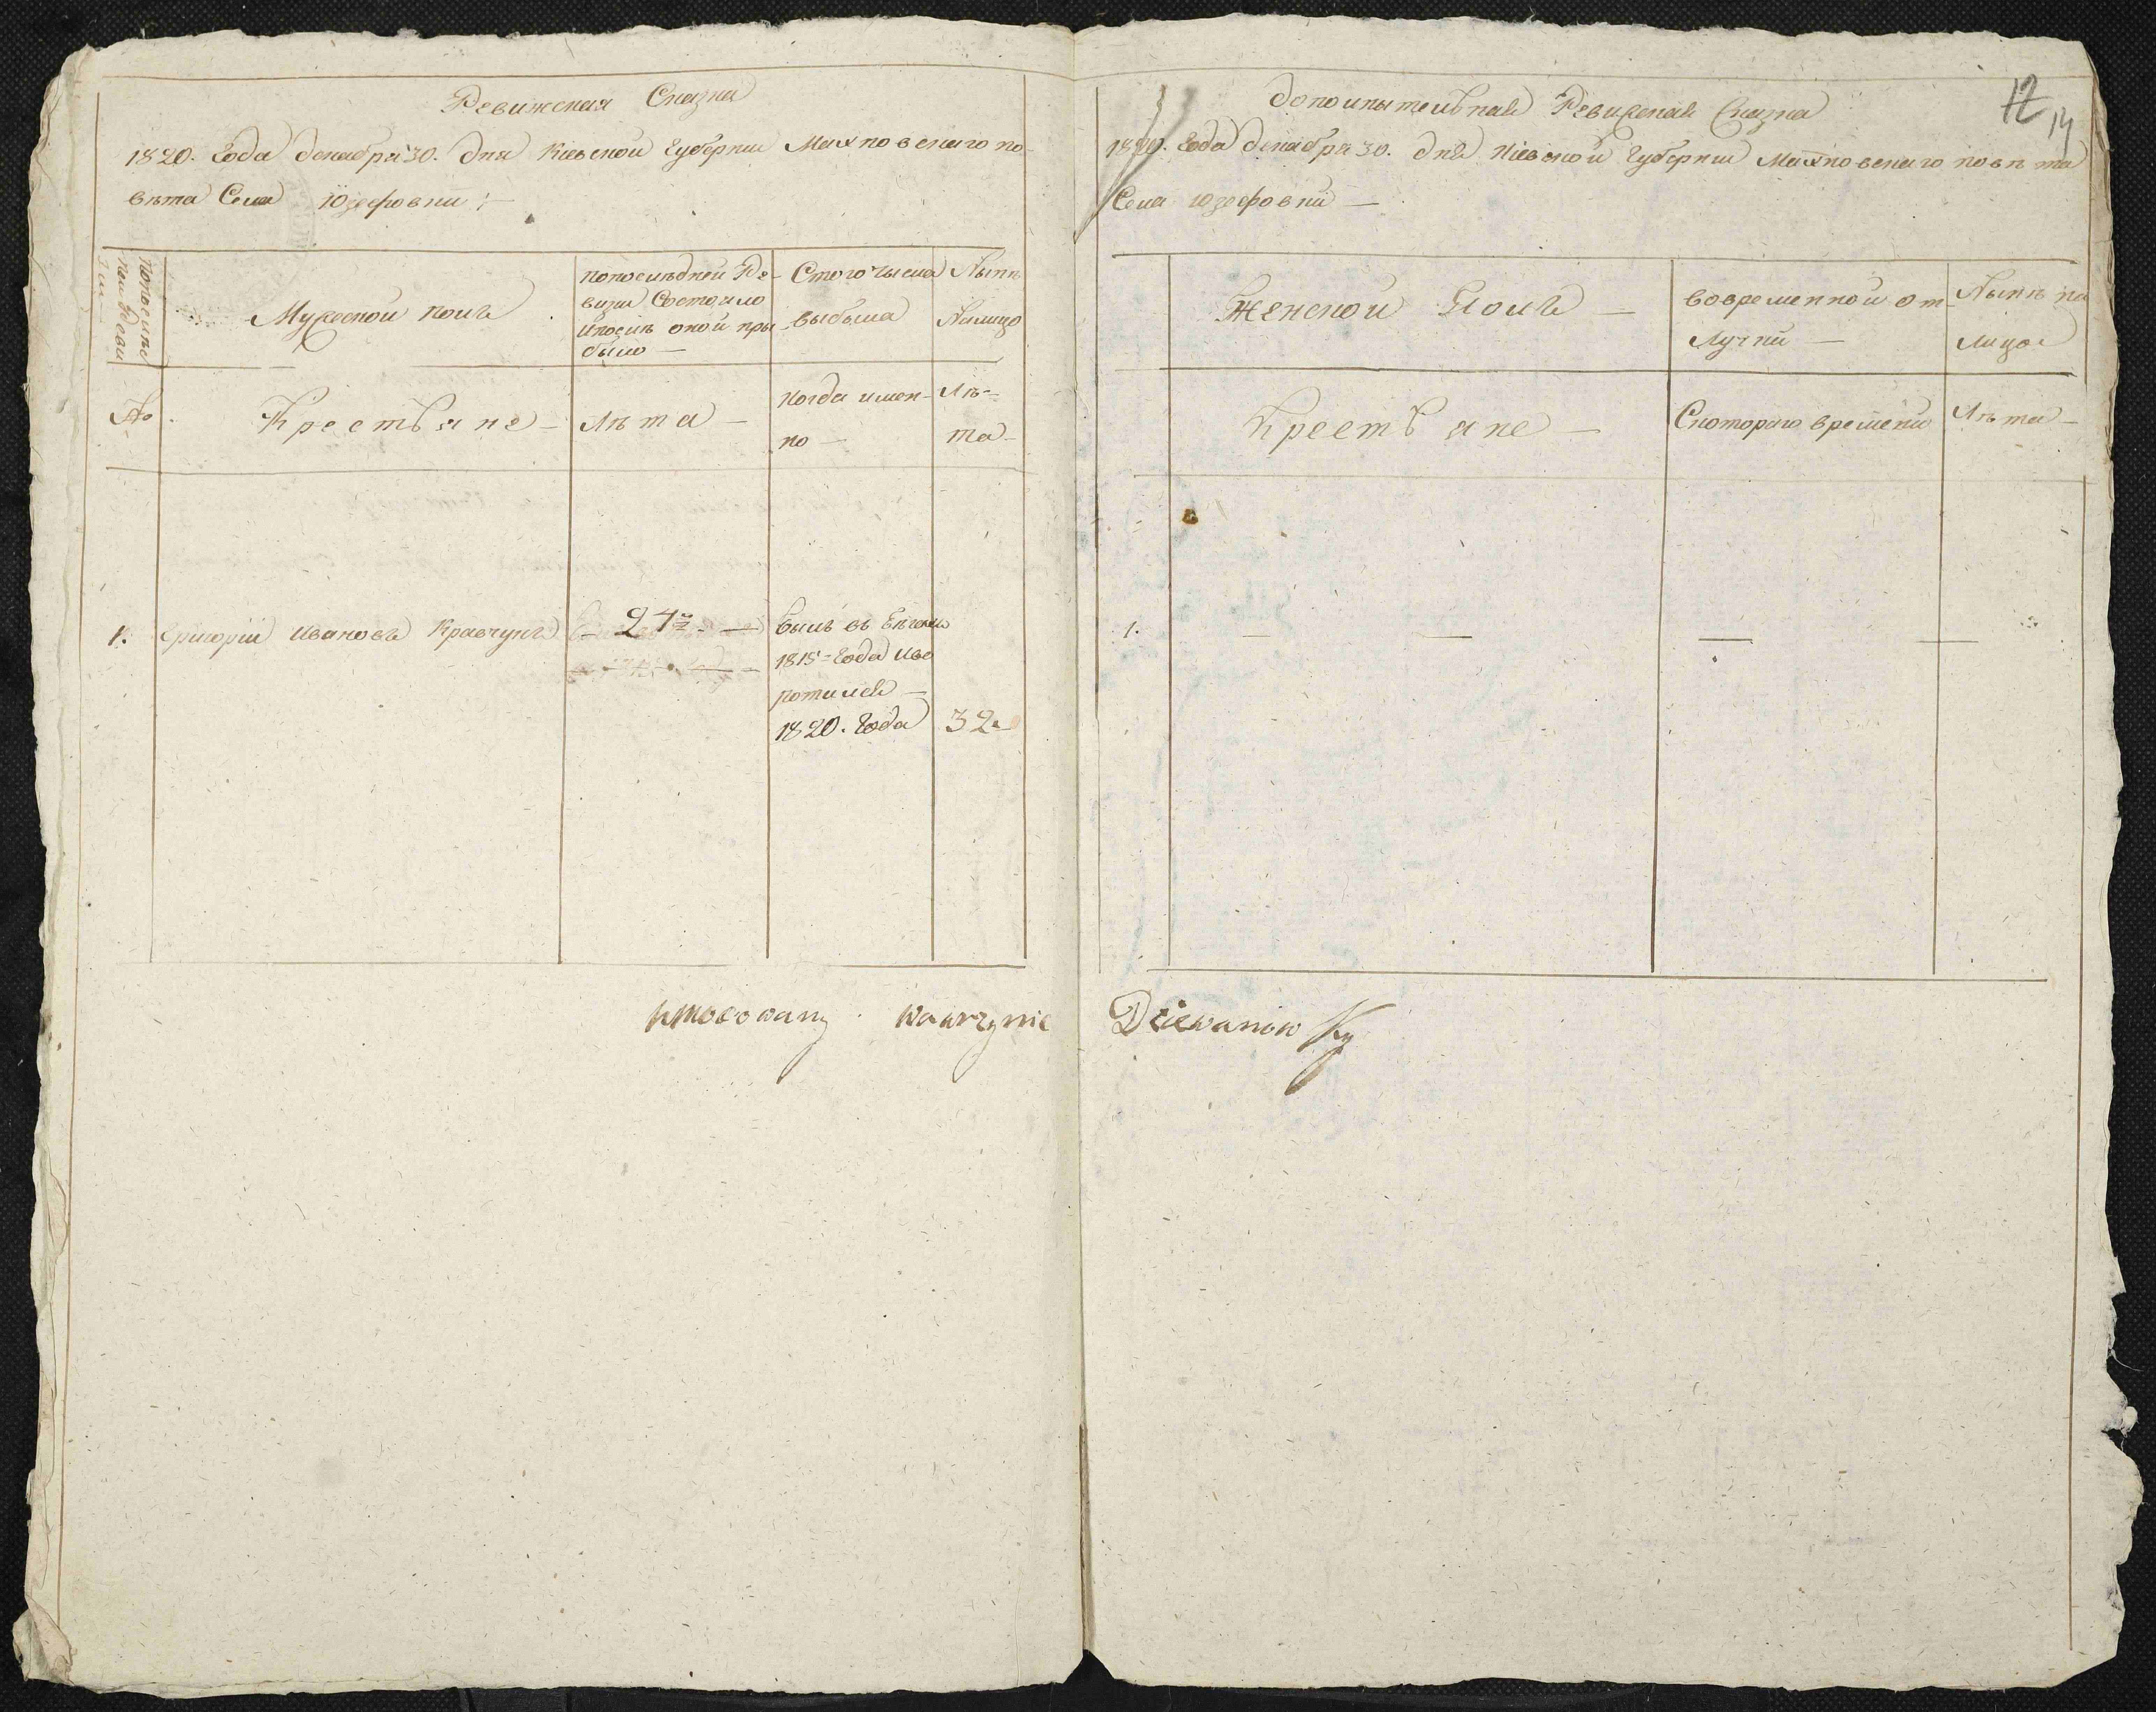 Ревижская Сказка
1820. Года декабря 30. дня Киевской Губернии Махновскаго по-
вѣта Села Юзефовки :-
по послѣд
ней Реви
зіи
Мужеской полъ
по послѣдней Ре-
визіи Состояло
и послѣ оной при
было —
Стого числа
выбыло
Нынѣ
Налицо
№.
Крестьяне —
Лѣта —
когда имен-
но —
Лѣ-
та -
1. Григорій Ивановъ Кравчукъ — 24 — —
былъ въ бѣгахъ
1815 = Года иво
ротился —
1820. Года
32.
Umocowany Wawrzynie Dziewanowsky
12
14
Дополнытельная Ревижская Сказка
1820. Года декабря 30. дня Кіевской Губернии Махновскаго повѣта
Села Юзефовки —
Женской Полъ —
вовременной от-
лучки —
Нынѣ на
лицо
Крестьяне —
Скотораго времени
Лѣта —
1. — — — —